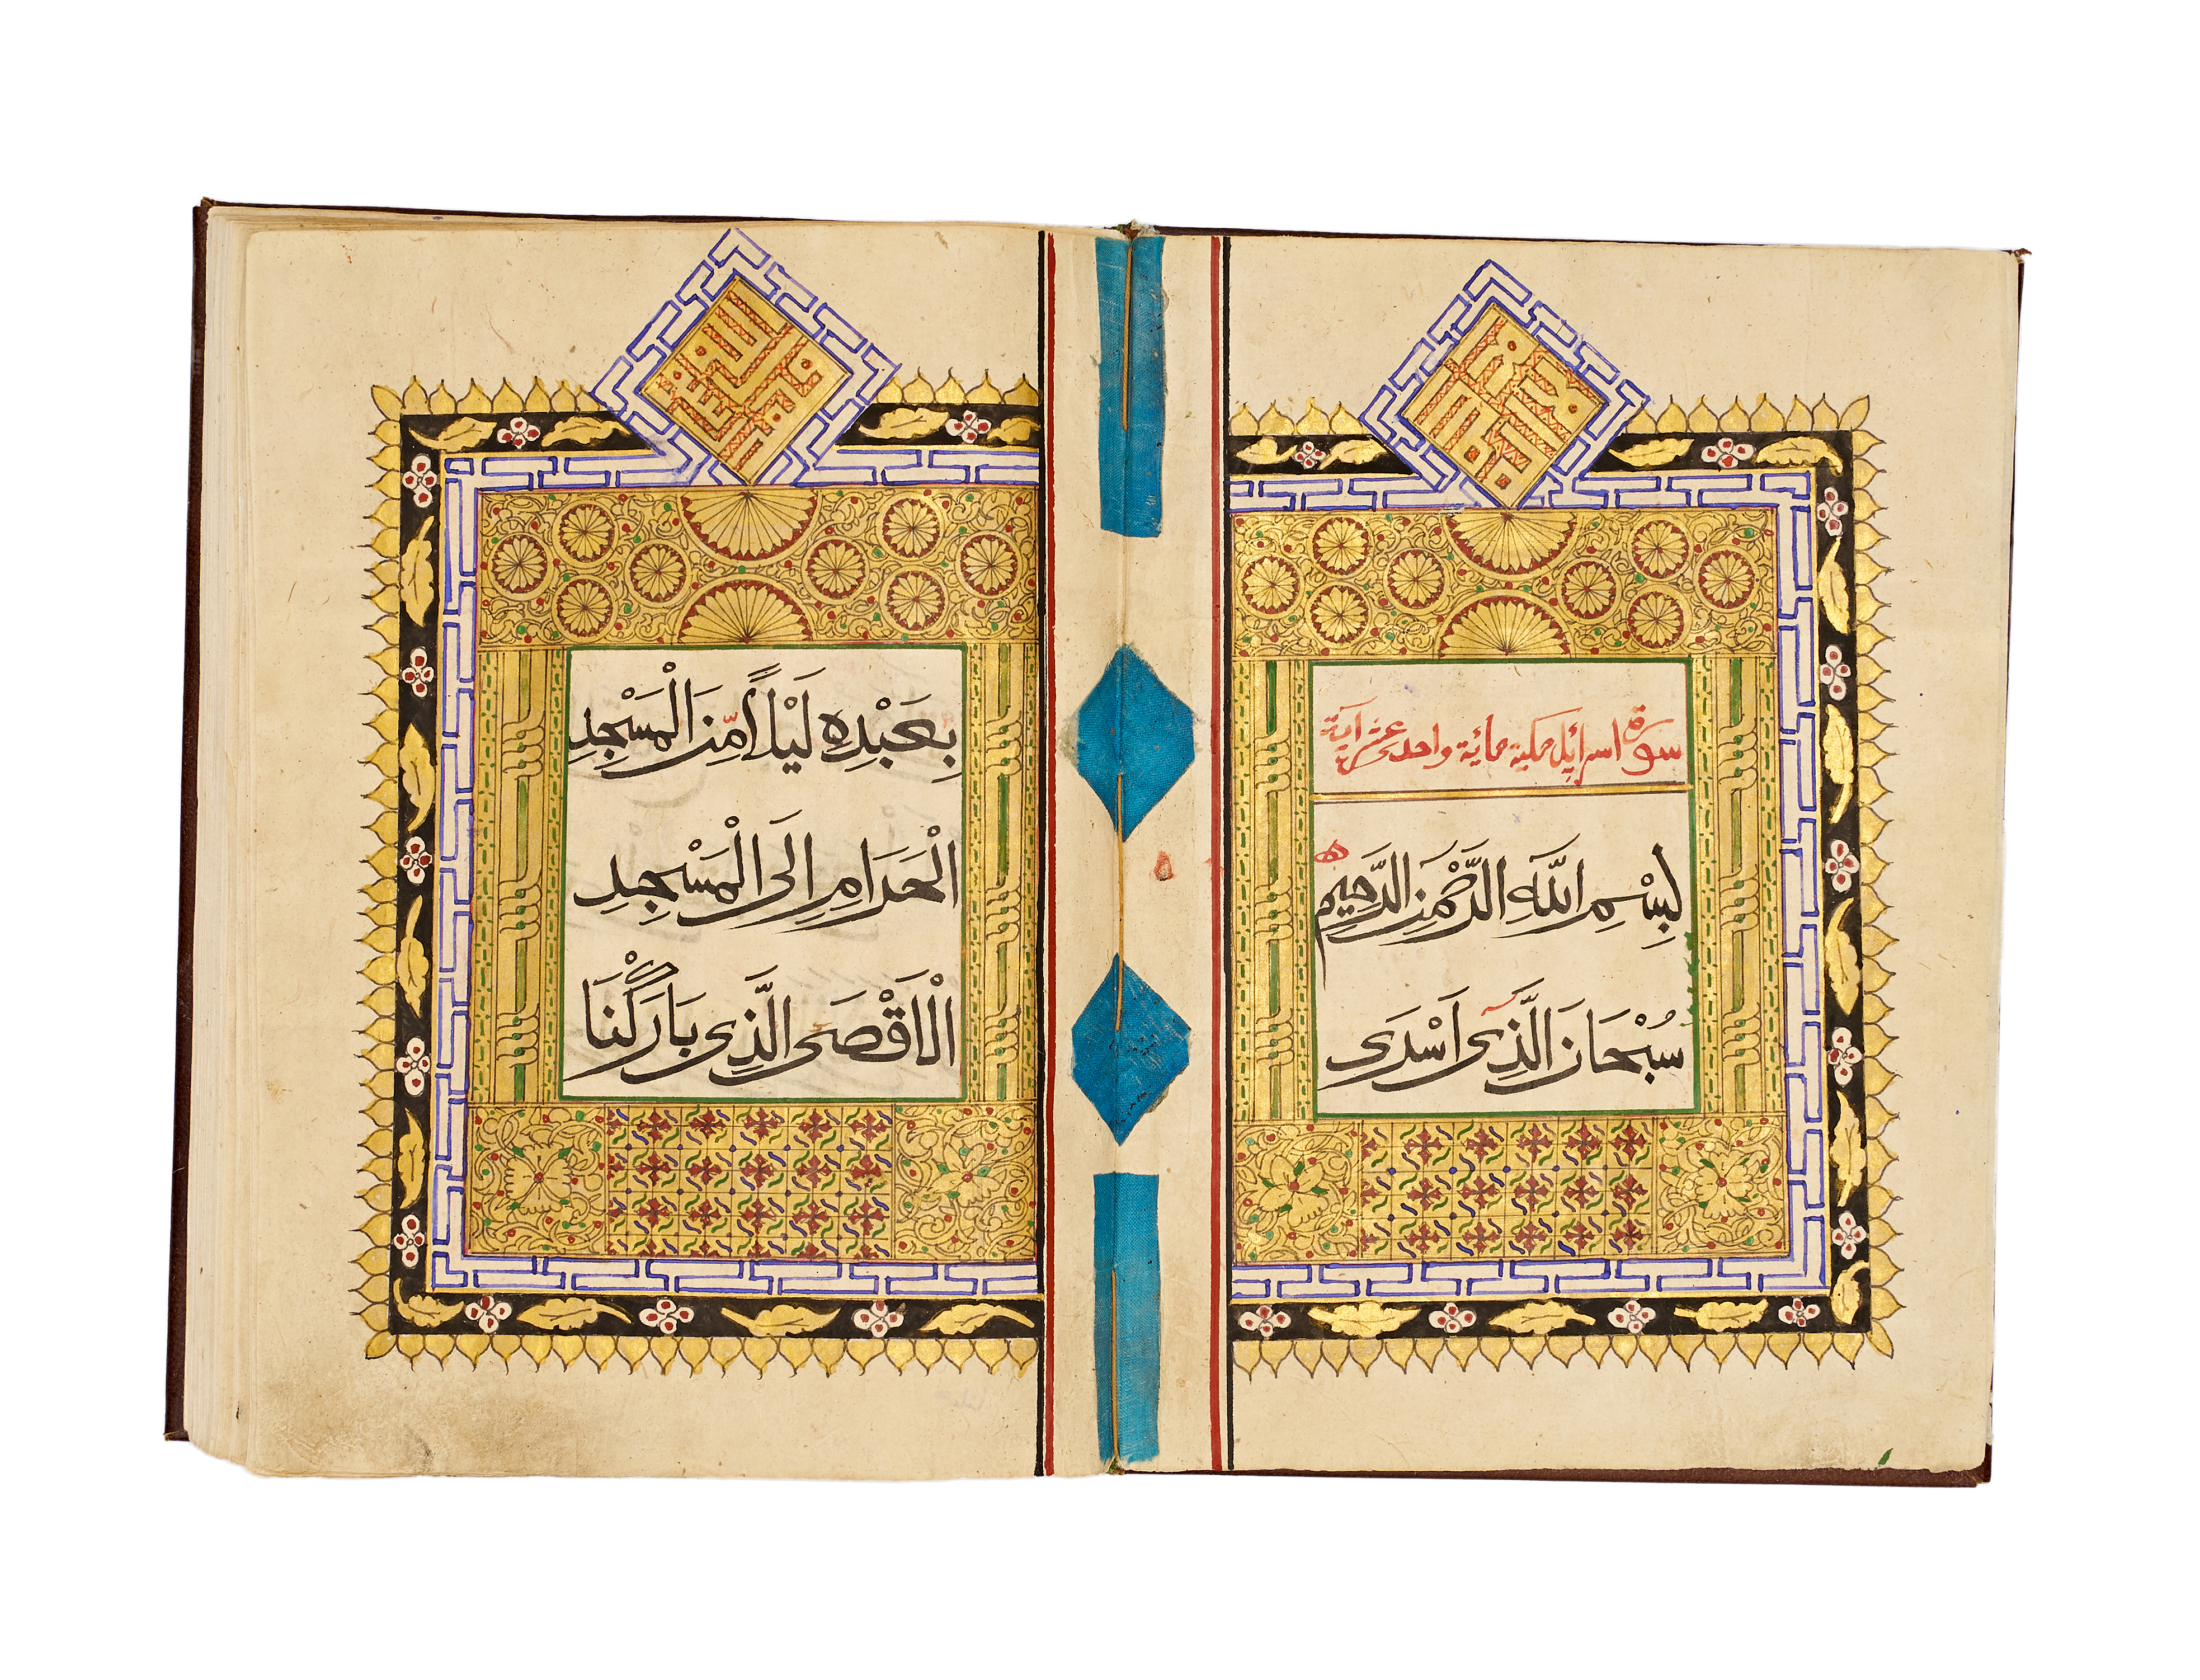 سورة اسرائل مكية مائية واحد عشر آية
بِسْمِ اللَّهِ الرَّحْمَنِ الرَّحِيمِ
سُبْحَانَ الَّذِى اَسْرَى
بِعَبْدِهِ لَيْلاً مِّنَ الْمَسْجِدِ
الْحَرَامِ اِلَى الْمَسْجِدِ
الْاَقْصَى الَّذِى بَارَكْنَا